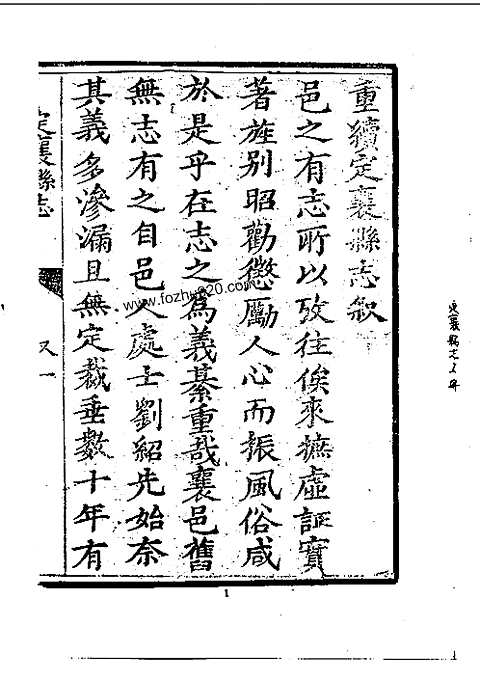 重續定襄縣志叙
邑之有志所以攷往俟來摭虛証實
著旌别昭勸懲勵人心而振風俗咸
於是乎在志之為義綦重哉襄邑舊
無志有之自邑人處士劉紹先始奈
其義多滲漏且無定裁垂數十年有
定襄縣志
又一
www.fozhu920.com
1